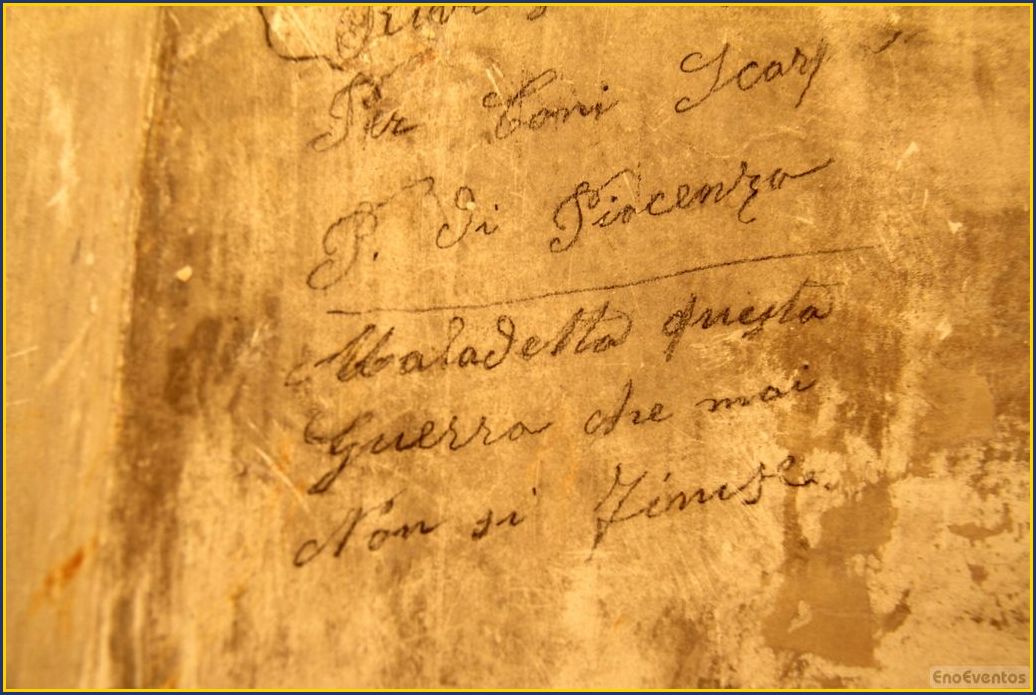 Per Toni Scarp
P. di Piacenza
Maladetta questa
Guerra che mai
Non si Finisce.
EnoEventos